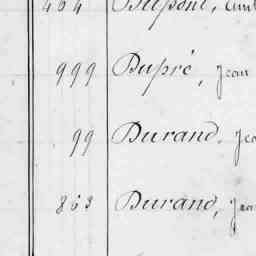 464 Dupont,
999 Dupré, Jean
99 Durand, Jea
863 Durand, Jea